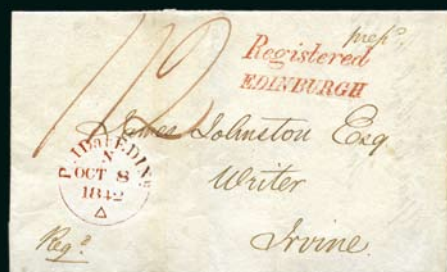 prepd.
1/2
Registered
EDINBURGH
James Johnston Esq
Writer
Irvine.
PAID at EDINr
S
OCT 8
1842
Regd